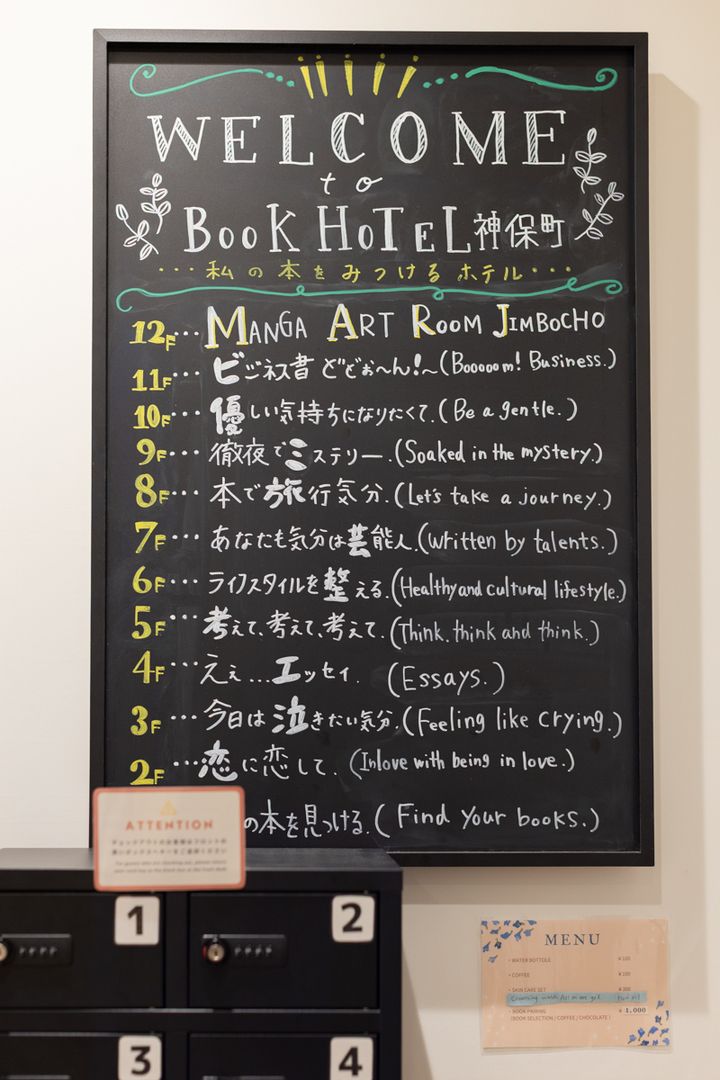 WELCOME
to
BOOK HOTEL 神保町
・・・私の本をみつけるホテル・・・
12F・・・MANGA ART ROOM JIMBOCHO
11F・・・ビジネス書 どどぉ〜ん!〜(Booooom! Business.)
10F・・・優しい気持ちになりたくて.(Be a gentle.)
9F・・・徹夜でミステリー.(Soaked in the mystery.)
8F・・・本で旅行気分.(Let's take a journey.)
7F・・・あなたも気分は芸能人.(Written by talents.)
6F・・・ライフスタイルを整える.(Healthy and cultural lifestyle.)
5F・・・考えて、考えて、考えて.(Think. think and think.)
4F・・・えぇ...エッセイ. (Essays.)
3F・・・今日は泣きたい気分.(Feeling like crying.)
2F・・・恋に恋して. (In love with being in love.)
の本を見つける.(Find your books.)
ATTENTION
1
2
3
4
MENU
・WATER BOTTLE ¥100
・COFFEE ¥100
・SKIN CARE SET ¥300
・BOOK PAIRING ¥1,000
(BOOK SELECTION / COFFEE / CHOCOLATE)